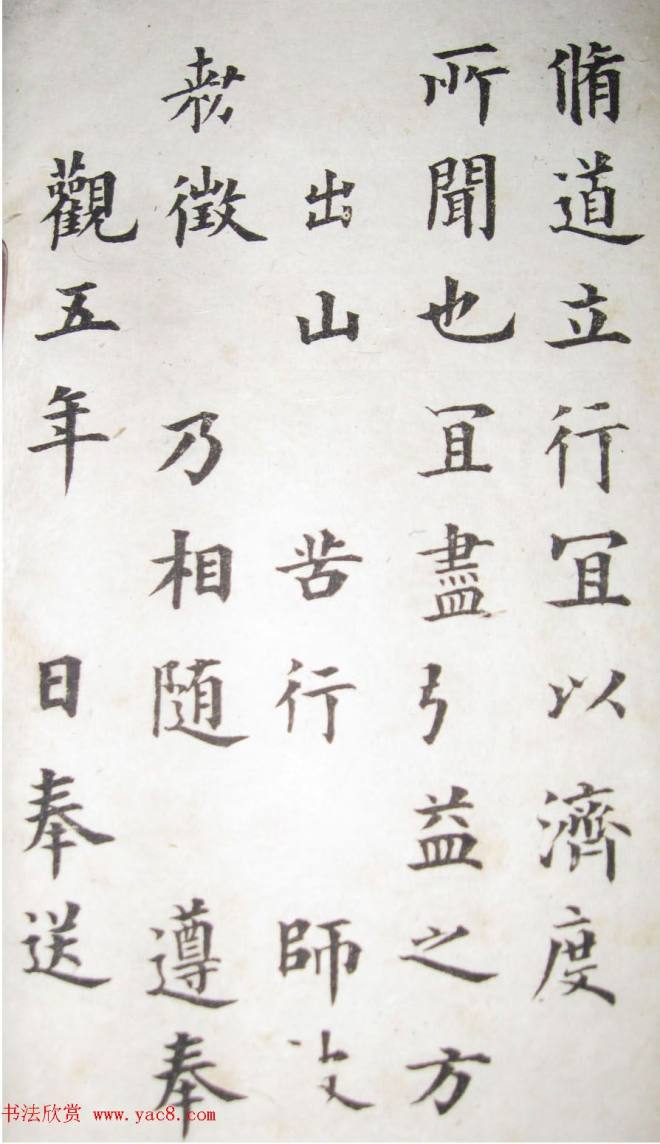 脩道立行冝以濟度
所聞也冝盡引益之方
出山苦行師
徴乃相随遵奉
觀五年日奉送
书法欣赏 www.yac8.com